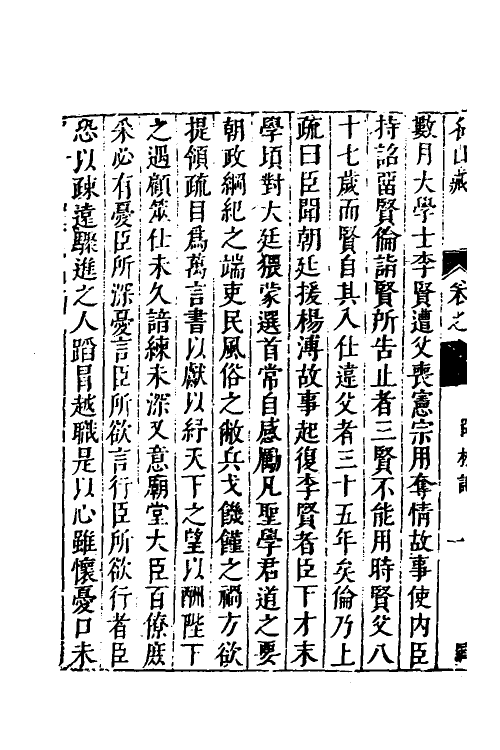 名山藏 卷之 臣林記 一
數月大學士李賢遭父喪憲宗用奪情故事使內臣
持詔畱賢倫詣賢所告止者三賢不能用時賢父八
十七歲而賢自其入仕違父者三十五年矣倫乃上
疏曰臣聞朝廷援楊溥故事起復李賢者臣下才末
學頃對大廷猥蒙選首常自感勵凡聖學君道之要
朝政綱紀之端吏民風俗之敝兵戈饑饉之禍方欲
提領疏目爲萬言書以獻以紓天下之望以酬陛下
之遇顧筮仕未久諳練未深又意廟堂大臣百僚庶
采必有憂臣所深憂言臣所欲言行臣所欲行者臣
恐以疎遠驟進之人蹈冒越職是以心雖懷憂口未